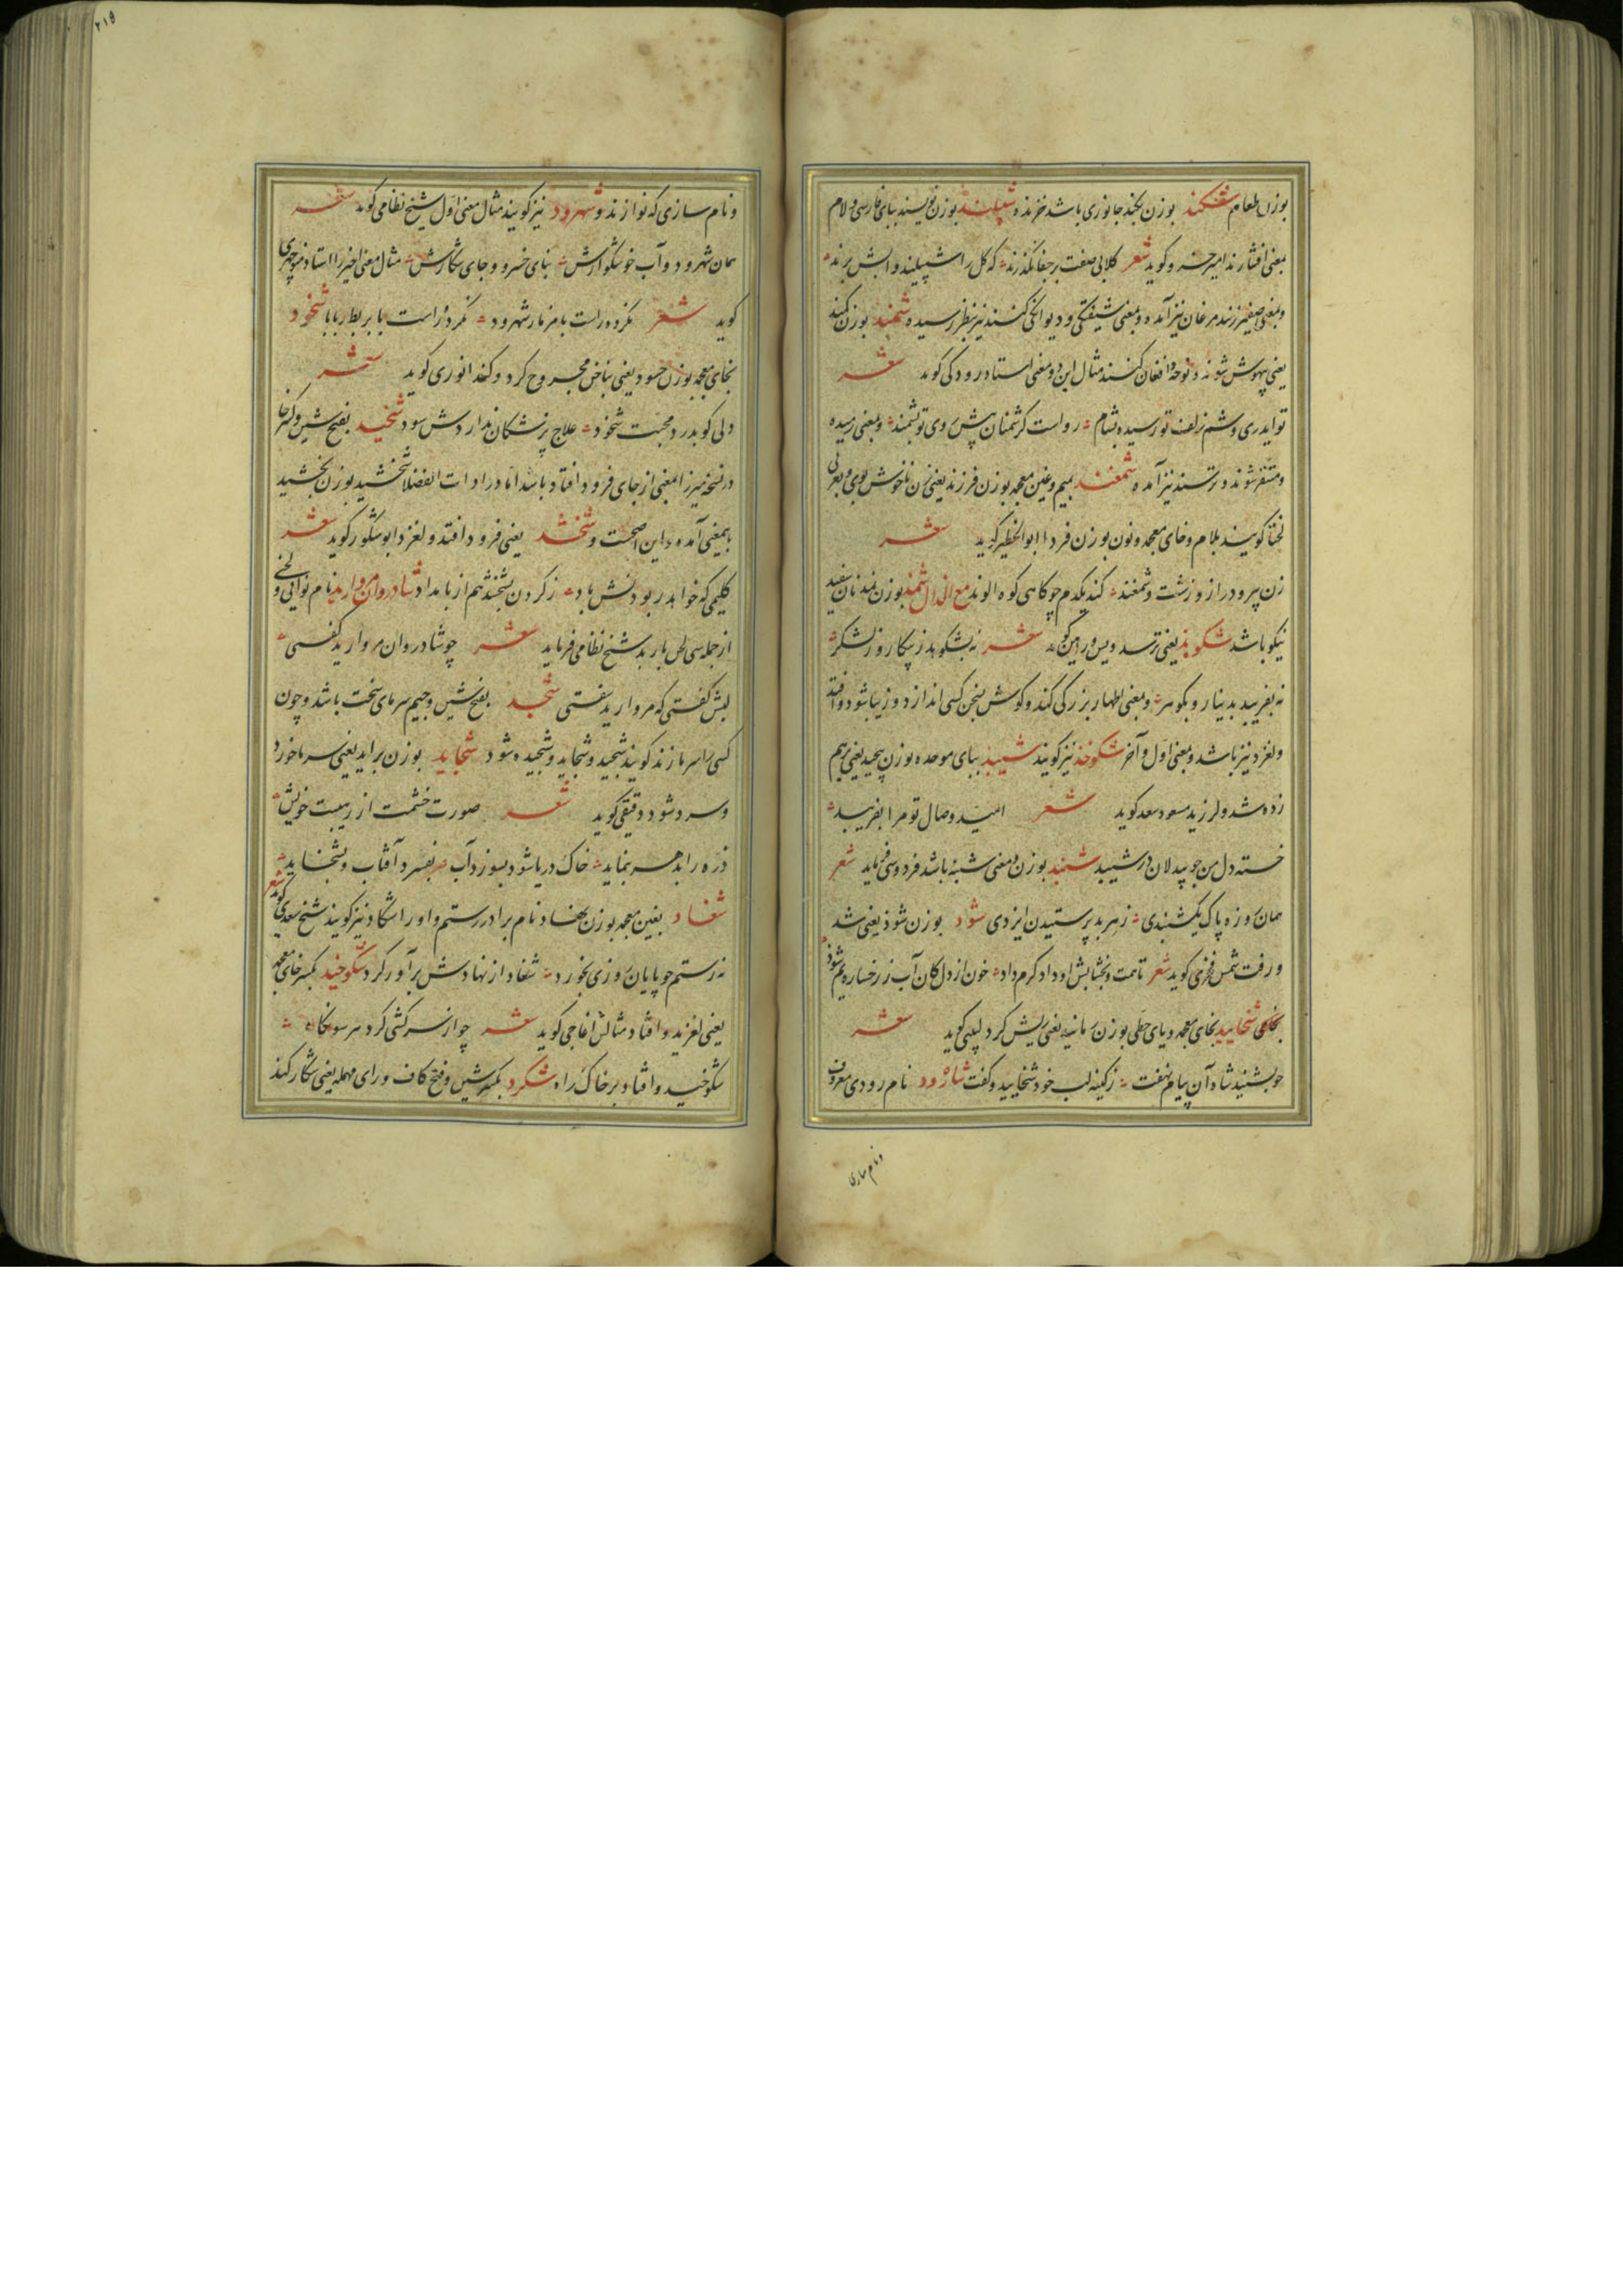 بوزن طعام شکند بوزن لجند جانوری باشد خزنده و شپلند بوزن نویسند ببای فارسی و لام
بمعنی افشارند امیر خسرو کوید شعر کلابی صفت بر جفا نکذرند که کل را شپیلند و آبش برند
و بمعنی صفیر زنند مرغان نیز آمده و بمعنی شیفتکی و دیوانکی کنند نیز بنظر رسیده شمند بوزن کمند
یعنی بیهوش شوند و نوحه و افغان کنند مثال این دو معنی استاد رودکی کوید شعر
رواست کر شمنان پیش روی تو بشمند و بمعنی رمیده
و متنفر شوند و ترسند نیز آمده شمغند بمیم و غین معجمه بوزن فرزند یعنی زن ناخوش بوی و بعربی
لخنا کویند بلام و خای معجمه و نون بوزن فردا ابو الخطیر کوید شعر
زن پیر و دراز و زشت و شمغند کند یکدم چو کاهی کوه الوند مع الدال شمد بوزن نمد نان سفید
نیکو باشد شکوهد یعنی ترسد ویس و رامین شعر نه بشکوهد ز پیکار و ز لشکر
نه بفریبد بدینار و بکوهر و بمعنی اظهار بزرکی کند و کوش بسخن کسی اندازد و زیبا شود و افتد
و لغزد نیز باشد و بمعنی اول و آخر شکوخد نیز کویند شیبد ببای موحده بوزن پیچید یعنی برهم
زده شد و لرزید مسعود سعد کوید شعر امید وصال تو مرا بفریبد
خسته دل من چو بیدلان در شیبد شنبد بوزن و معنی شنبه باشد فردوسی فرماید شعر
همان روزه پاک یکشنبدی ز هربد پرستیدن ایزدی شود بوزن شوذ یعنی شد
و رفت شمس فخری کوید شعر تا همت و بخشایش او داد کرم داد خون از دل کان آب ز رخساره یم شوذ
بخلمی شخایید بخای معجمه و یای حطی بوزن رمانید یعنی ریش کرد لبیبی کوید شعر
چو بشنید شاه آن پیام نهفت ز کینه لب خود شخایید و کفت شاه‌رود نام رودی معروف
و نام سازی
۲۱۹
و نام سازی که نوازند و شهرود نیز کویند مثال معنی اول شیخ نظامی کوید شعر
همان شهرود و آب خوشکوارش بنای خسرو و جای شکارش مثال معنی اخیر را استاد منوچهری
کوید شعر نکرده راست با مزمار شهرود نکرد راست با بربط ربابا شخود
بخای معجمه بوزن حسود یعنی بناخن مجروح کرد و کند انوری کوید شعر
دلی کو بدرد محبت شخود علاج پزشکان ندارد سود شخید بفتح شین و کسر خا
در نسخه میرزا بمعنی از جای فرود افتاد باشد اما در ادات الفضلا شخشید بوزن بخشید
باین معنی آمده و این اصحست و شخشد یعنی فرود افتد و لغزد ابو شکور کوید شعر
کلیمی که خواهد ربودنش باد ز کردن بشخشد هم از بامداد شادروان مروارید نام نوایی و لحنی
از جمله سی لحن باربد شیخ نظامی فرماید شعر چو شادروان مروارید کفتی
لبش کفتی که مروارید سفتی شجد بفتح شین و جیم سرمای سخت باشد و چون
کسی را سرما زند کویند شجید و شجاید و شجیده شود شجاید بوزن براید یعنی سرما خورد
و سرد شود دقیقی کوید شعر صورت خشمت ار ز هیبت خویش
ذره را بدهر بنماید خاک دریا شود بسوزد آب بفسرد آفتاب و بشجاید
شغاد بغین معجمه بوزن بغداد نام برادر رستم و او را شکاد نیز کویند شیخ سعدی کوید شعر
نه رستم چو پایان روزی بخورد شغاد از نهادش بر آورد کرد شکوخید بکسر خای معجمه
یعنی لغزید و افتاد مثالش آغاجی کوید شعر چو از سرکشی کرد هر سو نکاه
شکوخید و افتاد بر خاک راه شکرد بکسر شین و فتح کاف و رای مهمله یعنی شکار کند